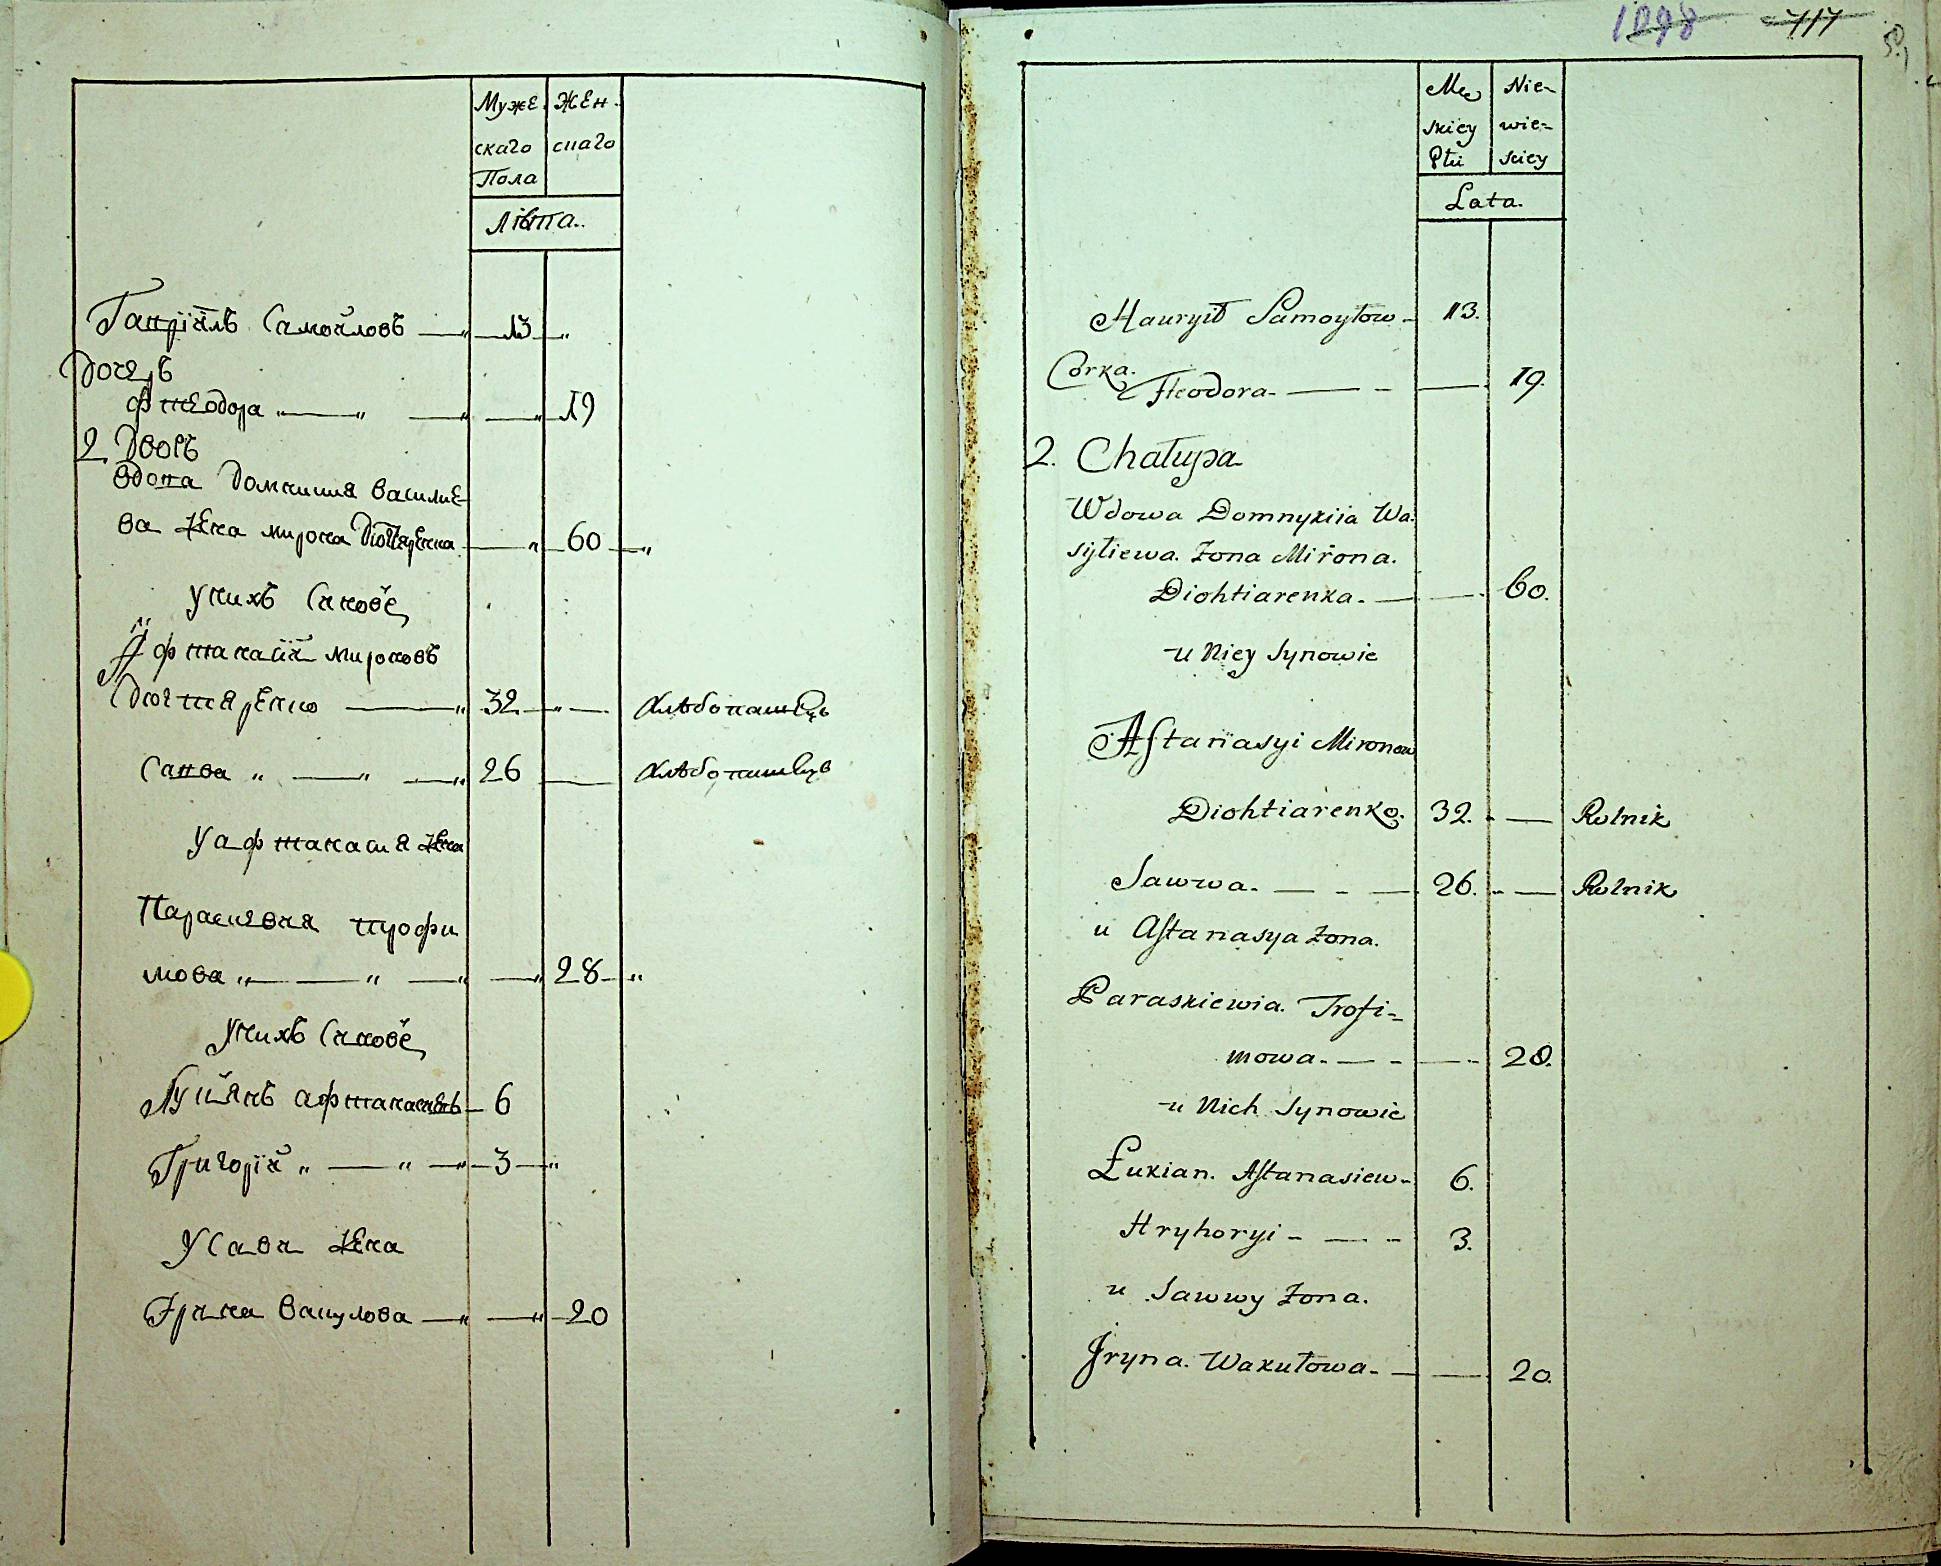 Муже- Жен-
скаго скаго
Пола
Лѣта.
Гавріилъ Самойловъ — 13 —
Дочерь
Фтеодора — 19
2. Дворъ
Вдова Домникия Василие-
ва жена мирона Диогтяренка — 60 —
У нихъ Синове
Афтанасій мироновъ
Диогтяренко — 32 — Хлѣбопашецъ
Савва — 26 — Хлѣбопашецъ
У афтанасия жена
Параскевия трофи
мова — 28 —
У нихъ Синове
Лукіянъ афтанасиевъ — 6
Григорій — 3 —
У Савви жена
Ирина Вакулова — 20
1298 717
Mę Nie-
skiey wie-
Płci skiey
Lata.
Hauryił Samoyłow - 13.
Córka.
Fteodora. — 19.
2. Chałupa
Wdowa Domnykiia Wa-
syliewa. Żona Mirona.
Diohtiarenka. — 60.
u Niey Synowie
Aftanasyi Mironow
Diohtiarenko. 32. — Rolnik
Sawwa. — 26. — Rolnik
u Aftanasya żona.
Paraskiewia. Trofi-
mowa. — 28.
u Nich Synowie
Łukian. Aftanasiew - 6.
Hryhoryi - — - 3.
u Sawwy Żona.
Jryna. Wakułowa. — 20.